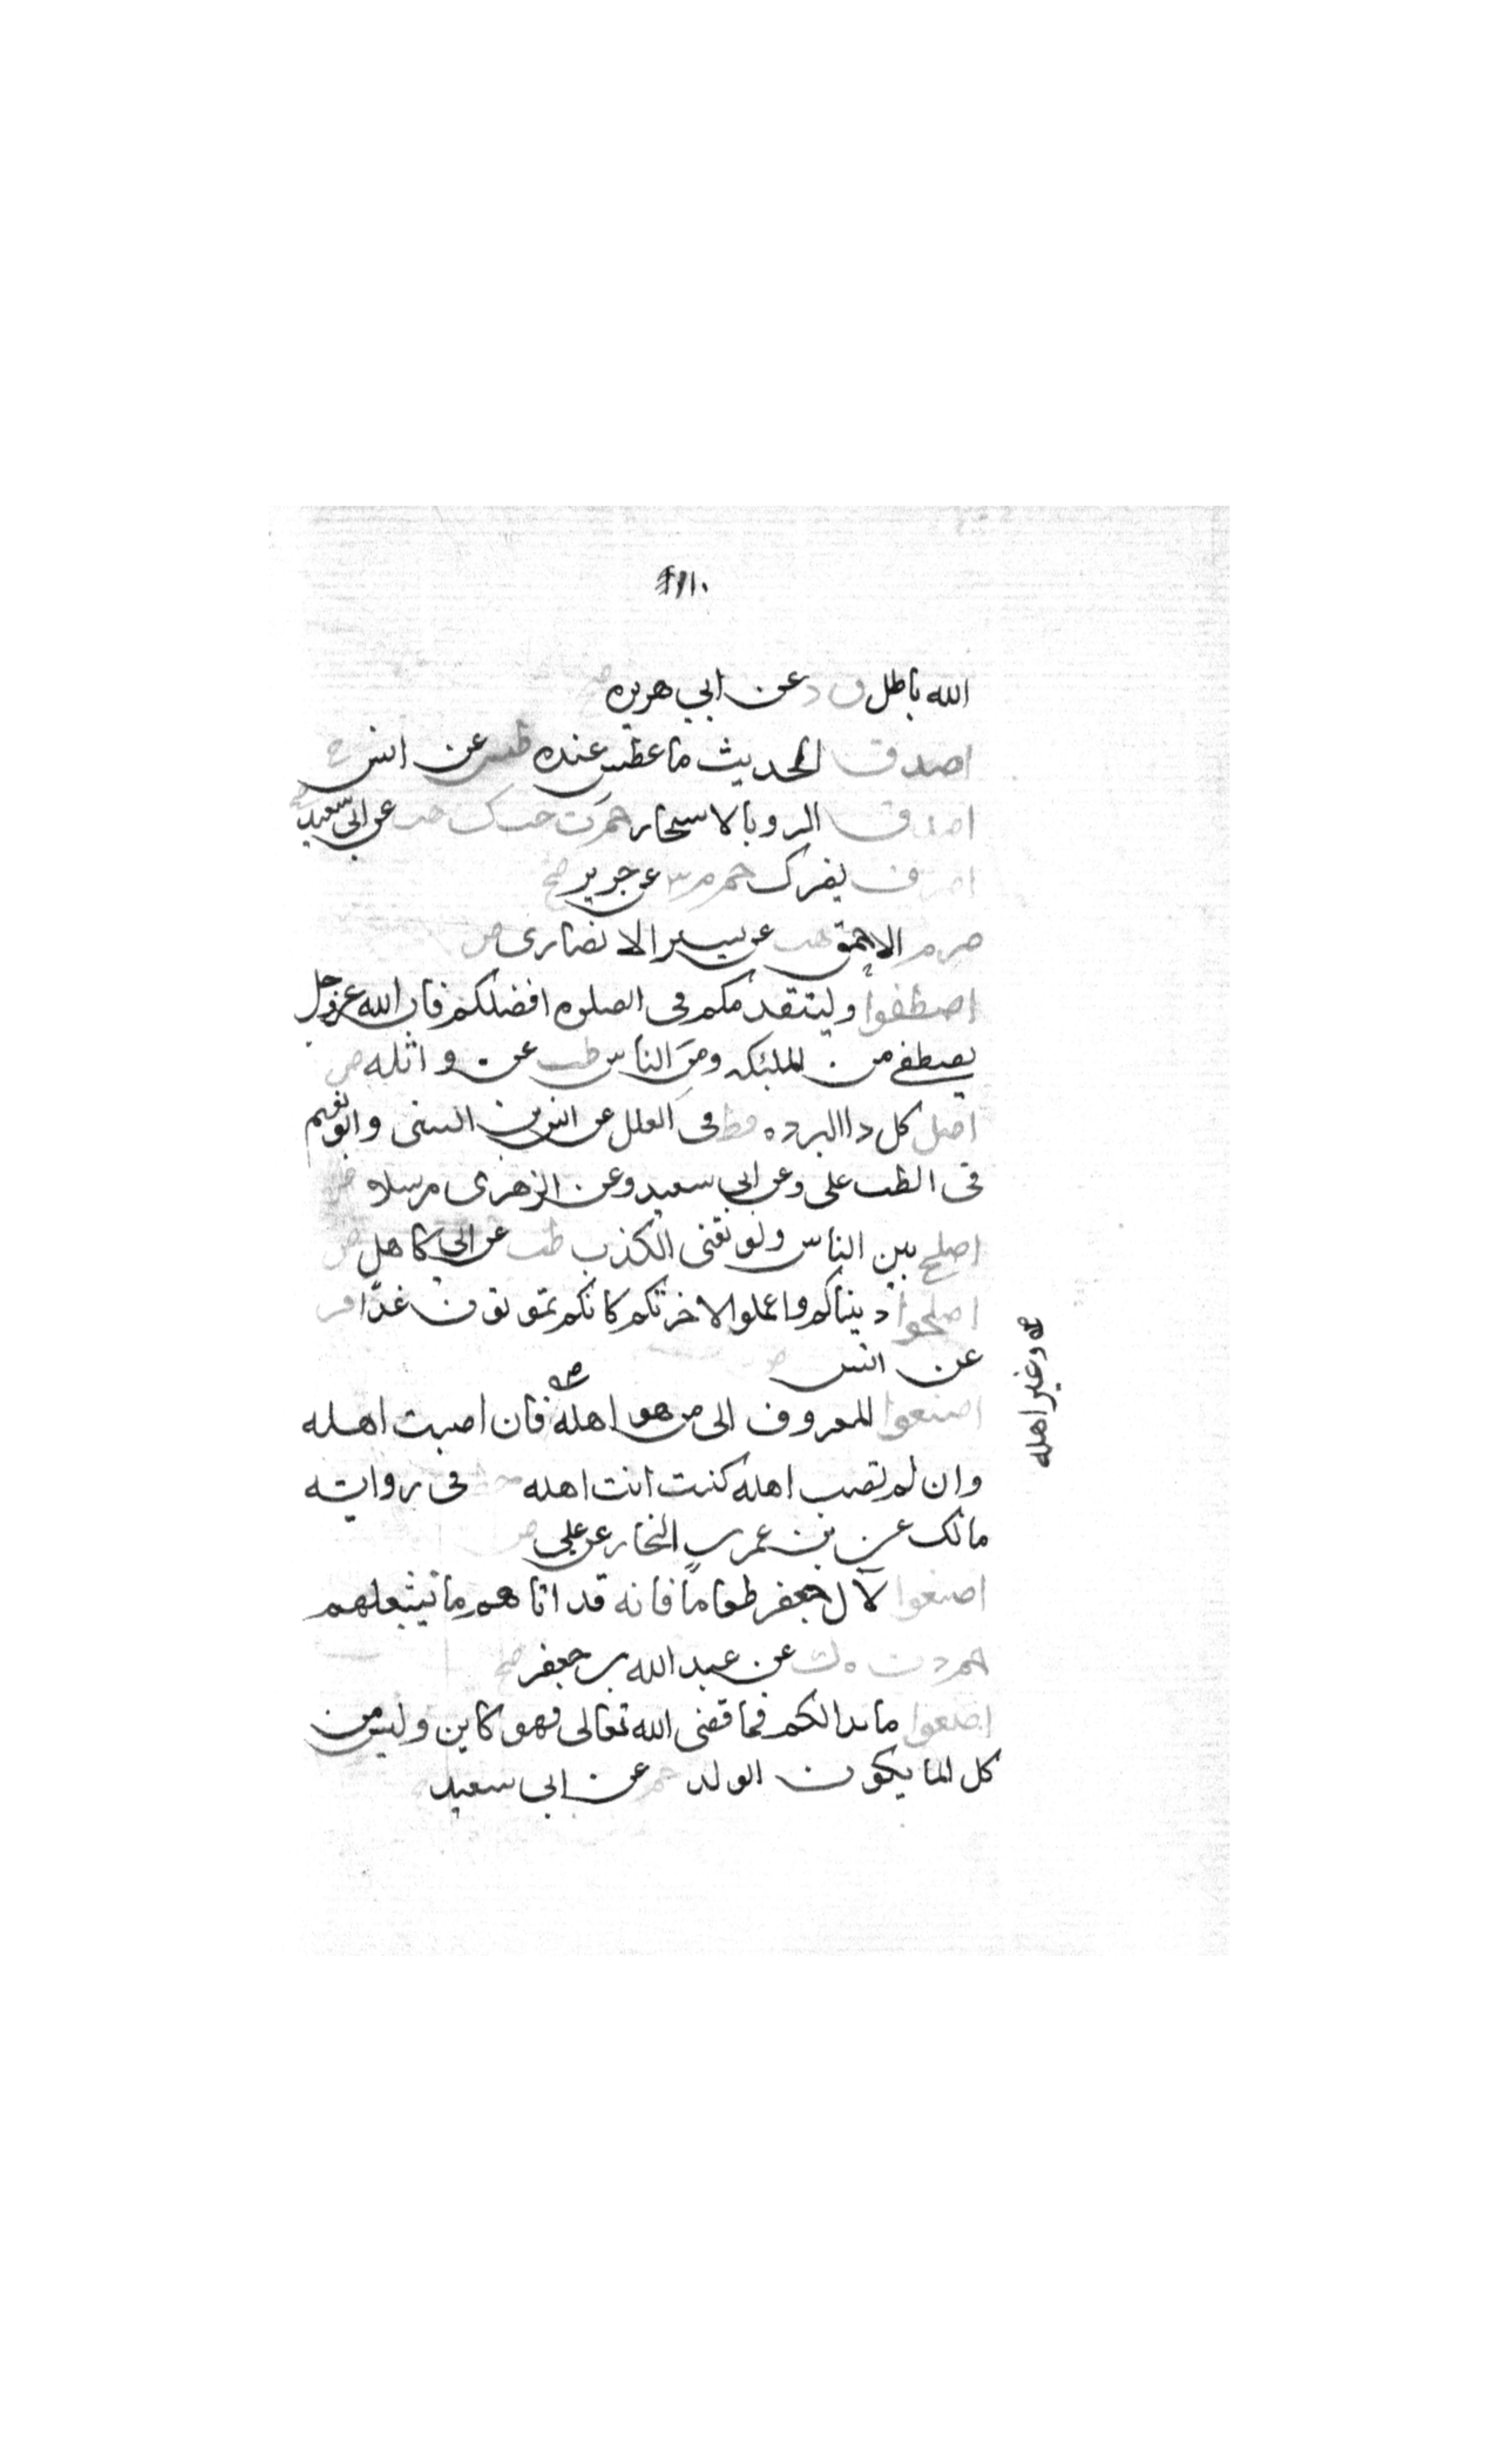 الله باطل ق د عن ابي هريره
اصدق الحديث ما عطس عنده طس عن انس
اصدق الرويا بالاسحار حم ت حب ك هب عن ابي سعيد
اصرف بصرك حم م ٣ عن جرير صح
صرم الاحمق هب عن بسير الانصارى ض
اصطفوا وليتقدمكم فى الصلوه افضلكم فان الله عز وجل
يصطفى من الملئكه ومن الناس طب عن واثله ض
اصل كل دا البرده قط فى العلل عن انس بن السنى وابو نعيم
فى الطب على وعن ابي سعيد وعن الزهرى مرسلا ض
اصلح بين الناس ولو تعنى الكذب طب عن ابي كاهل ض
اصلحوا دنياكم واعملوا لاخرتكم كانكم تموتون غدًا فر
عن انس ض
اصنعوا المعروف الى من هو اهله فان اصبت اهله
والى غير اهله
وان لم تصب اهله كنت انت اهله فى رواية
مالك عن بن عمر بن النجار عن على ض
اصنعوا لآل جعفر طعامًا فانه قد اتاهم ما يشغلهم
حم د ت ه ك عن عبد الله بن جعفر صح
اصنعوا ما بدا لكم فما قضى الله تعالى فهو كاين وليس من
كل الما يكون الولد حم عن ابى سعيد